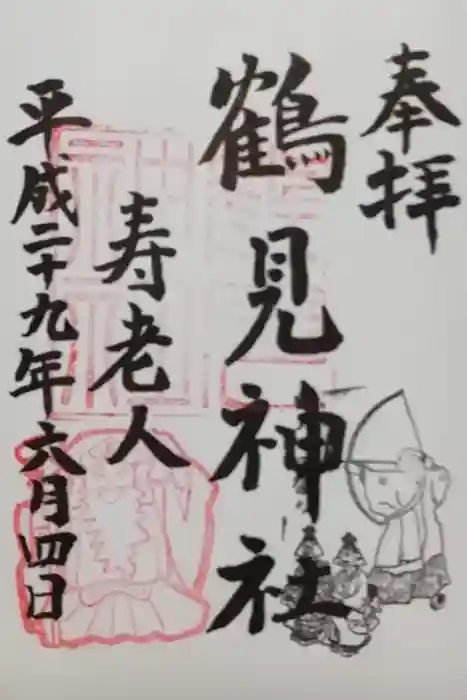 奉拝
鶴見神社
寿老人
平成二十九年六月四日